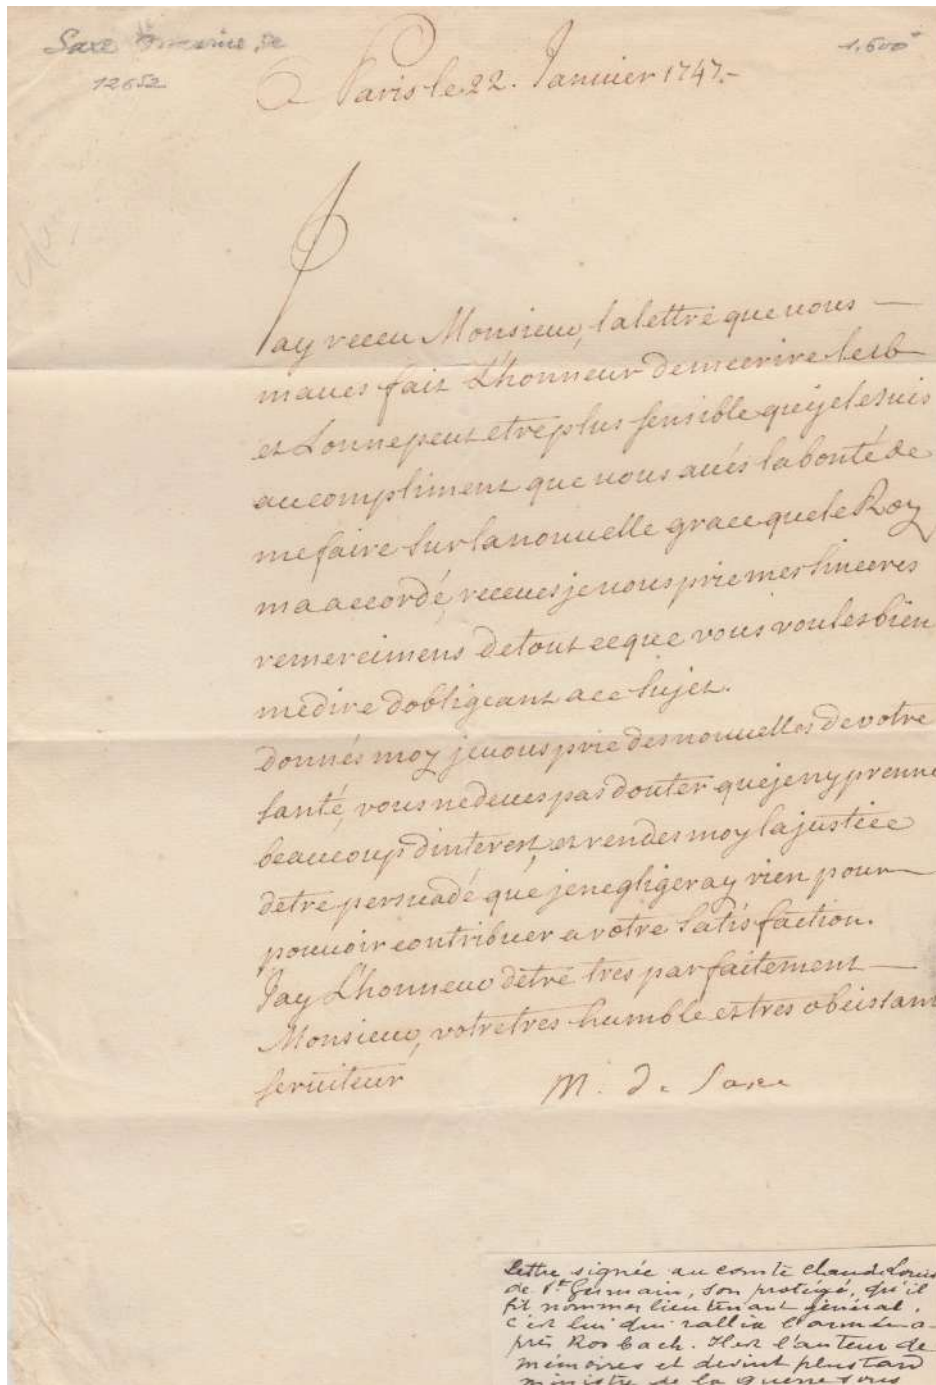 Saxe Maurice, de
12652
1.600
A Paris le 22. Janvier 1747.-
Jay receu Monsieur, la lettre que vous
maves fait L'honneur de mecrire le
et Lon ne peut etre plus sensible que je le suis
au compliment que vous avés la bonté de
me faire sur la nouvelle grace que le Roy
ma accordé, receves je vous prie mes sinceres
remercimens de tout ce que vous voules bien
me dire dobligeant a ce sujet.
donnés moy je vous prie des nouvelles de votre
santé, vous ne deves pas douter que je ny prenne
beaucoup dinterest, et rendes moy la justice
detre persuadé que je negligeray rien pour
pouvoir contribuer a votre satisfaction.
Jay L'honneur detre tres parfaitement
Monsieur, votre tres humble et tres obeissant
serviteur
M. de Saxe
Lettre signée au comte Claude Louis
de St Germain, son protégé, qu'il
fit nommer lieutenant général.
C'est lui qui rallia l'armée a-
près Rosbach. Il est l'auteur de
mémoires et devint plus tard
ministre de la guerre sous